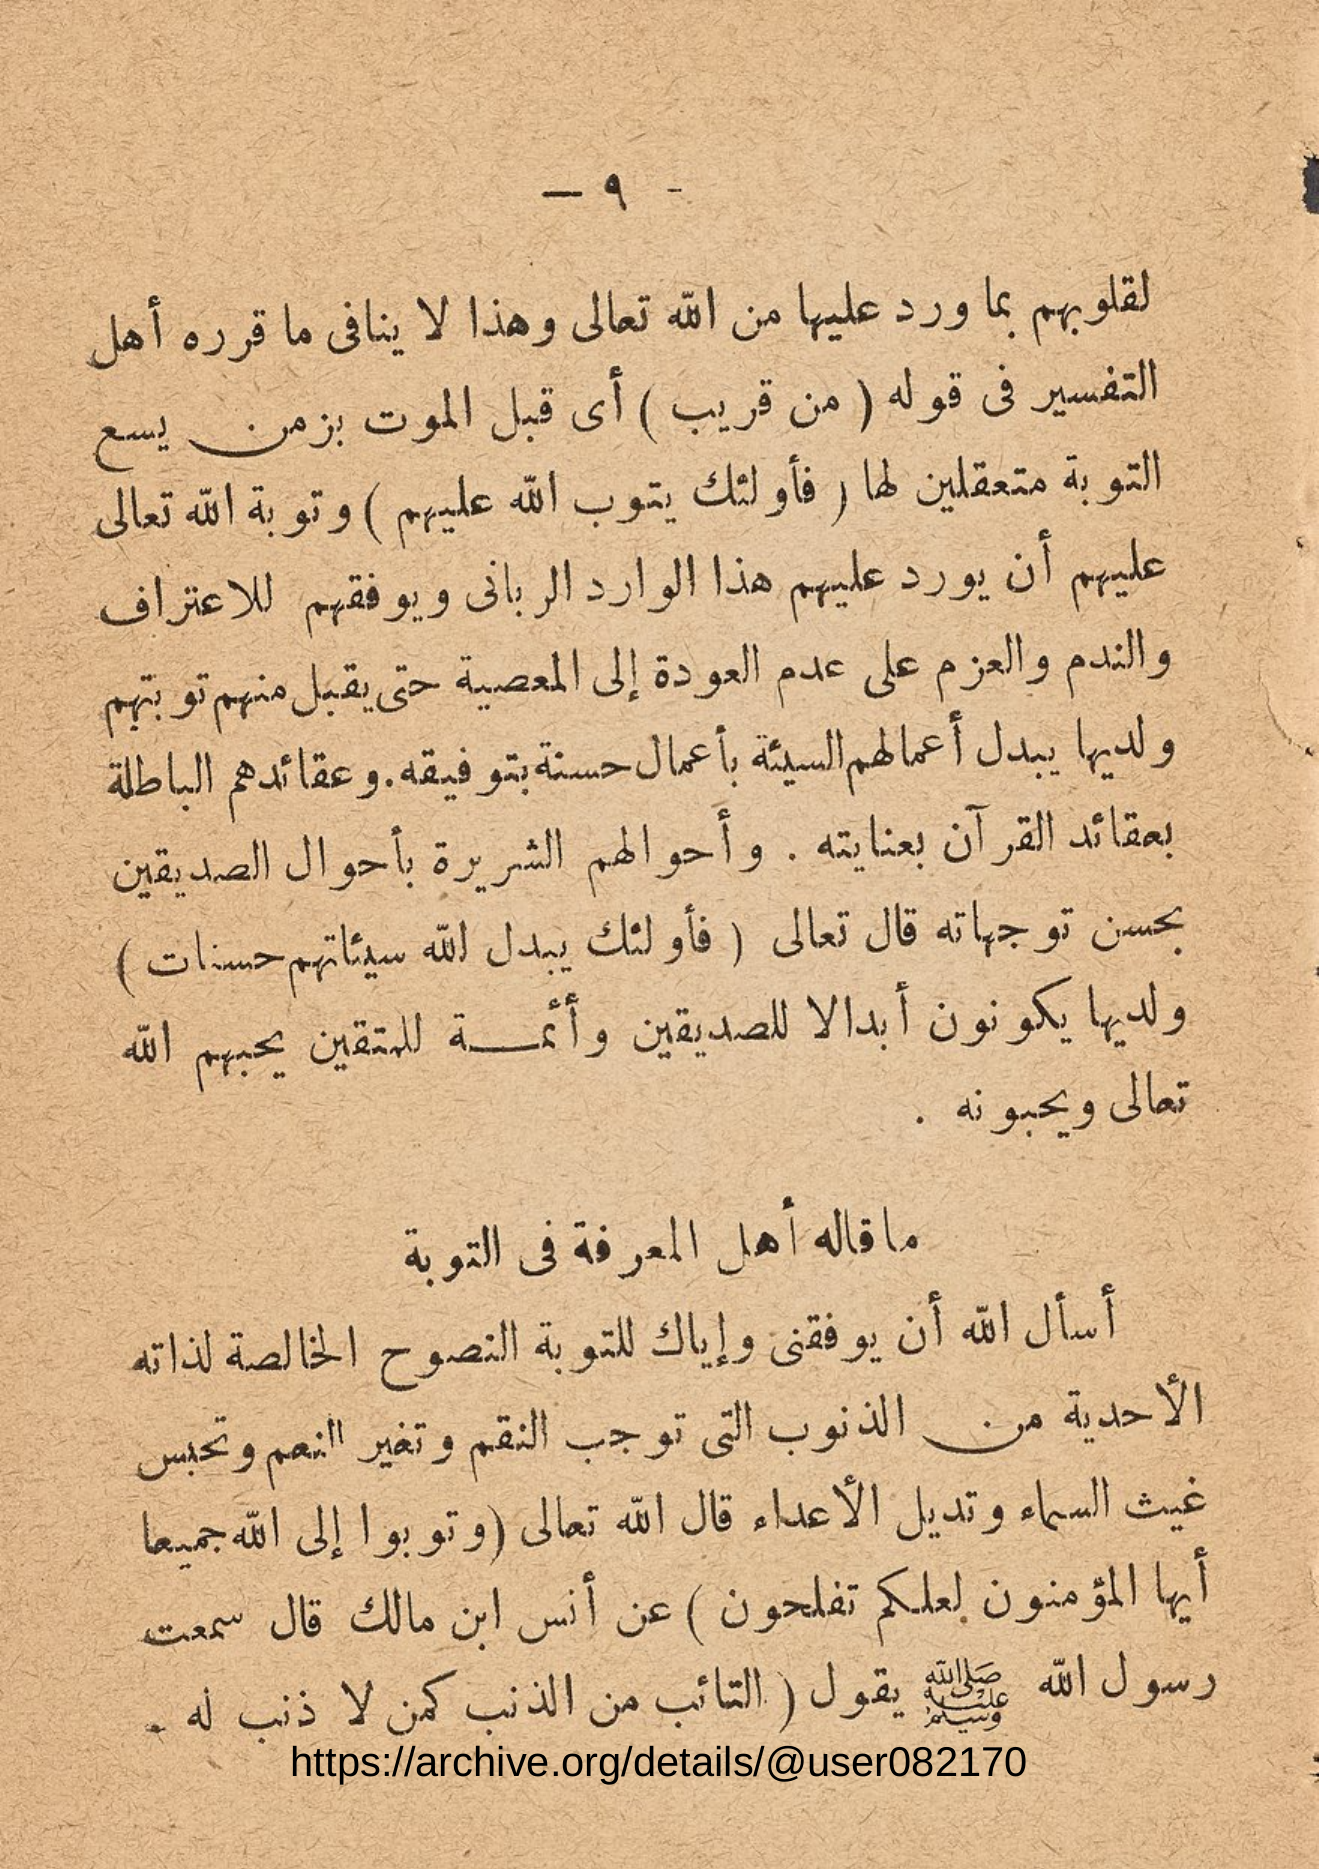 — ٩ -
لقلوبهم بما ورد عليها من الله تعالى وهذا لا ينافى ما قرره أهل
التفسير فى قوله ( من قريب ) أى قبل الموت بزمن يسع
التوبة متعقلين لها ( فأولئك يتوب الله عليهم ) وتوبة الله تعالى
عليهم أن يورد عليهم هذا الوارد الربانى ويوفقهم للاعتراف
والندم والعزم على عدم العودة إلى المعصية حتى يقبل منهم توبتهم
ولديها يبدل أعمالهم السيئة بأعمال حسنة بتوفيقه . وعقائدهم الباطلة
بعقائد القرآن بعنايته . وأحوالهم الشريرة بأحوال الصديقين
بحسن توجهاته قال تعالى ( فأولئك يبدل الله سيئاتهم حسنات )
ولديها يكونون أبدالا للصديقين وأئمـــة للمتقين يحبهم الله
تعالى ويحبونه .
ما قاله أهل المعرفة فى التوبة
أسأل الله أن يوفقنى وإياك للتوبة النصوح الخالصة لذاته
الأحدية من الذنوب التى توجب النقم وتغير النعم وتحبس
غيث السماء وتديل الأعداء قال الله تعالى ( وتوبوا إلى الله جميعا
أيها المؤمنون لعلكم تفلحون ) عن أنس ابن مالك قال سمعت
رسول الله ﷺ يقول ( التائب من الذنب كمن لا ذنب له -
https://archive.org/details/@user082170